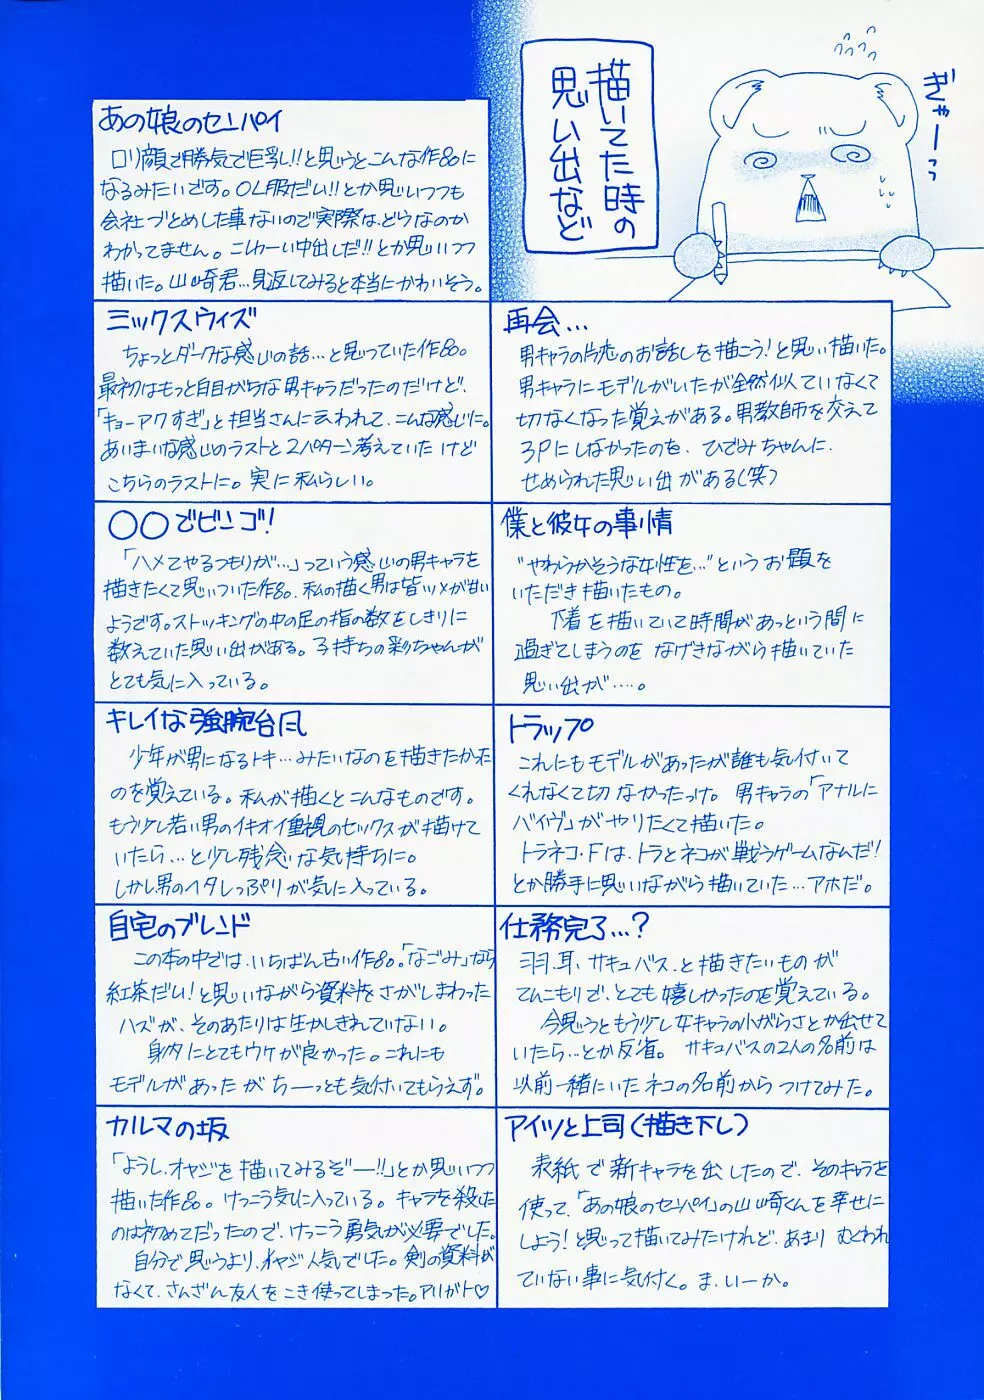 描いてた時の
思い出など
ぎゃーーっっ
あの娘のセンパイ
ロリ顔で勝気で巨乳!!と思うとこんな作品に
なるみたいです。OL服だい!!とか思いつつも
会社づとめした事ないので実際は、どうなのか
わかってません。こしかーい中出しだ!!とか思いつつ
描いた。山崎君…見返してみると本当にかわいそう。
ミックスウィズ
ちょっとダークな感じの話…と思っていた作品。
最初はもっと自目がちな男キャラだったのだけど、
「キョーアクすぎ」と担当さんに云われて、こんな感じに。
あいまいな感じのラストと2パターン考えていたけど
こちらのラストに。実に私らしい。
再会…
男キャラの片恋のお話しを描こう!と思い描いた。
男キャラにモデルがいたが全然似ていなくて
切なくなった覚えがある。男教師を交えて
3Pにしなかったのを、ひでみちゃんに、
せめられた思い出がある(笑)
○○でビンゴ!
「ハメてやるつもりが…」っていう感じの男キャラを
描きたくて思いついた作品。私の描く男は皆ツメが甘い
ようです。ストッキングの中の足の指の数をしきりに
数えていた思い出がある。子持ちの彩ちゃんが
とても気に入っている。
僕と彼女の事情
"やわらかそうな女性を…"というお題を
いただき描いたもの。
下着を描いていて時間があっという間に
過ぎてしまうのをなげきながら描いていた
思い出が…。
キレイな強腕台風
少年が男になるトキ…みたいなのを描きたかった
のを覚えている。私が描くとこんなものです。
もう少し若い男のイキオイ重視のセックスが描けて
いたら…と少し残念な気持ちに。
しかし男のヘタレっぷりが気に入っている。
トラップ
これにもモデルがあったが誰も気付いて
くれなくて切なかったっけ。男キャラの「アナルに
バイヴ」がやりたくて描いた。
トラネコ・Fは、トラとネコが戦うゲームなんだ!
とか勝手に思いながら描いていた…アホだ。
自宅のブレンド
この本の中では、いちばん古い作品。「なごみ」なら
紅茶だい!と思いながら資料をさがしまわった
ハズが、そのあたりは生かしきれていない。
身内にとてもウケが良かった。これにも
モデルがあったがちーっとも気付いてもらえず。
仕務完了…?
羽、耳、サキュバス、と描きたいものが
てんこもりで、とても嬉しかったのを覚えている。
今思うともう少し女キャラの小がらさとか出せて
いたら…とか反省。サキュバスの2人の名前は
以前一緒にいたネコの名前からつけてみた。
カルマの坂
「ようし、オヤジを描いてみるぞー!!」とか思いつつ
描いた作品。けっこう気に入っている。キャラを殺した
のは初めてだったので、けっこう勇気が必要でした。
自分で思うより、オヤジ人気でした。剣の資料が
なくて、さんざん友人をこき使ってしまった。アリガト♡
アイツと上司(描き下し)
表紙で新キャラを出したので、そのキャラを
使って、「あの娘のセンパイ」の山崎くんを幸せに
しよう!と思って描いてみたけれど、あまりむくわれ
ていない事に気付く。ま、いーか。